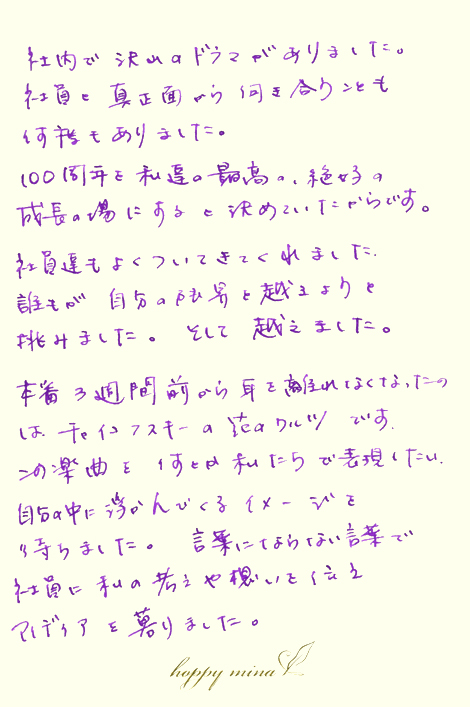 社内で沢山のドラマがありました。
社員と真正面から向き合うことも
何度もありました。
100周年を私達の最高の、絶好の
成長の場にすると決めていたからです。
社員達もよくついてきてくれました。
誰もが自分の限界を越えようと
挑みました。そして越えました。
本番3週間前から耳を離れなくなったの
は、チャイコフスキーの花のワルツです。
この楽曲を何とか私たちで表現したい、
自分の中に浮かんでくるイメージを
待ちました。言葉にならない言葉で
社員に私の考えや想いを伝え
アイディアを募りました。
happy mina